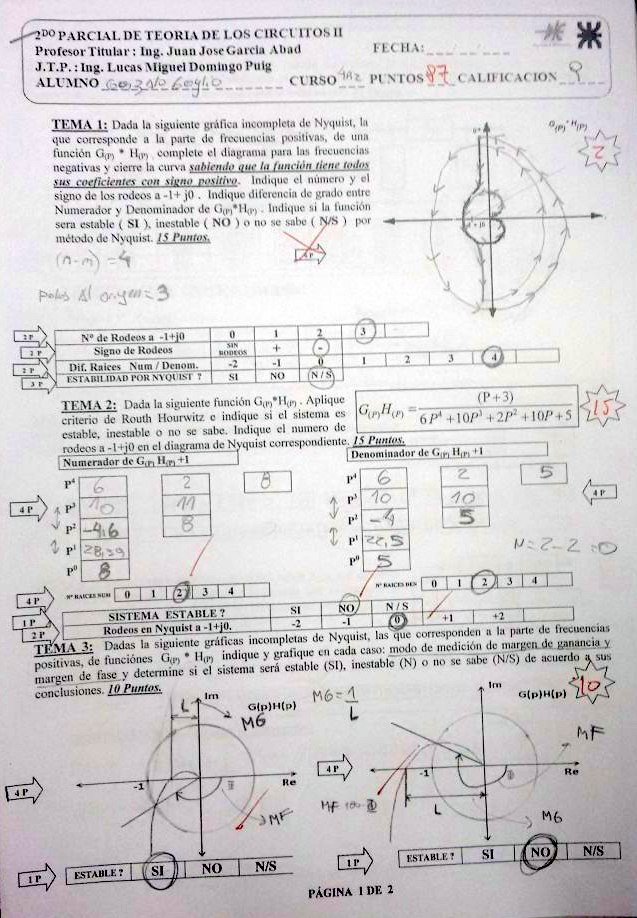 2DO PARCIAL DE TEORIA DE LOS CIRCUITOS II
Profesor Titular : Ing. Juan Jose Garcia Abad FECHA:
J.T.P. : Ing. Lucas Miguel Domingo Puig
ALUMNO CURSO PUNTOS 87 CALIFICACION 9
TEMA 1: Dada la siguiente gráfica incompleta de Nyquist, la
que corresponde a la parte de frecuencias positivas, de una
función G(P) * H(P) complete el diagrama para las frecuencias
negativas y cierre la curva sabiendo que la función tiene todos
sus coeficientes con signo positivo. Indique el número y el
signo de los rodeos a -1+ j0 . Indique diferencia de grado entre
Numerador y Denominador de G(P)*H(P) . Indique si la función
sera estable ( SI ), inestable ( NO ) o no se sabe ( N/S ) por
método de Nyquist. 15 Puntos.
G(P) * H(P)
2
4 P
(n-m) = 4
polos al origen = 3
2 P Nº de Rodeos a -1+j0 0 1 2 3
2 P Signo de Rodeos SIN RODEOS + -
2 P Dif. Raices Num / Denom. -2 -1 0 1 2 3 4
3 P ESTABILIDAD POR NYQUIST ? SI NO N/S
TEMA 2: Dada la siguiente función G(P)*H(P) . Aplique
criterio de Routh Hourwitz e indique si el sistema es
estable, inestable o no se sabe. Indique el numero de
rodeos a -1+j0 en el diagrama de Nyquist correspondiente. 15 Puntos.
G(P)H(P) = (P+3) / 6P⁴+10P³+2P²+10P+5
15
Numerador de G(P) H(P) +1 Denominador de G(P) H(P) +1
P⁴ 6 2 8 P⁴ 6 2 5
4 P P³ 10 11 P³ 10 10 4 P
P² -4,6 8 P² -4 5
P¹ 28,39 P¹ 22,5
P⁰ 8 P⁰ 5
N=2-2=0
4 P Nº RAICES NUM 0 1 2 3 4 Nº RAICES DEN 0 1 2 3 4
1 P SISTEMA ESTABLE ? SI NO N / S
2 P Rodeos en Nyquist a -1+j0. -2 -1 0 +1 +2
TEMA 3: Dadas la siguiente gráficas incompletas de Nyquist, las que corresponden a la parte de frecuencias
positivas, de funciónes G(P) * H(P) indique y grafique en cada caso: modo de medición de margen de ganancia y
margen de fase y determine si el sistema será estable (SI), inestable (N) o no se sabe (N/S) de acuerdo a sus
conclusiones. 10 Puntos.
10
L Im G(p)H(p) MG
MG = 1/L
Im G(p)H(p) MF
4 P -1 Re MF
4 P -1 Re L MG
1 P ESTABLE ? SI NO N/S
1 P ESTABLE ? SI NO N/S
PÁGINA 1 DE 2